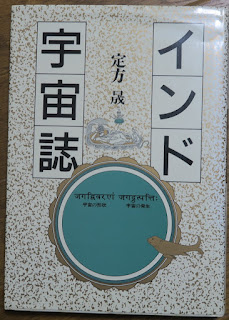 インド
宇宙誌
定方 晟
जगद्विवरणं जगदुत्पत्तिः
宇宙の形状 宇宙の発生